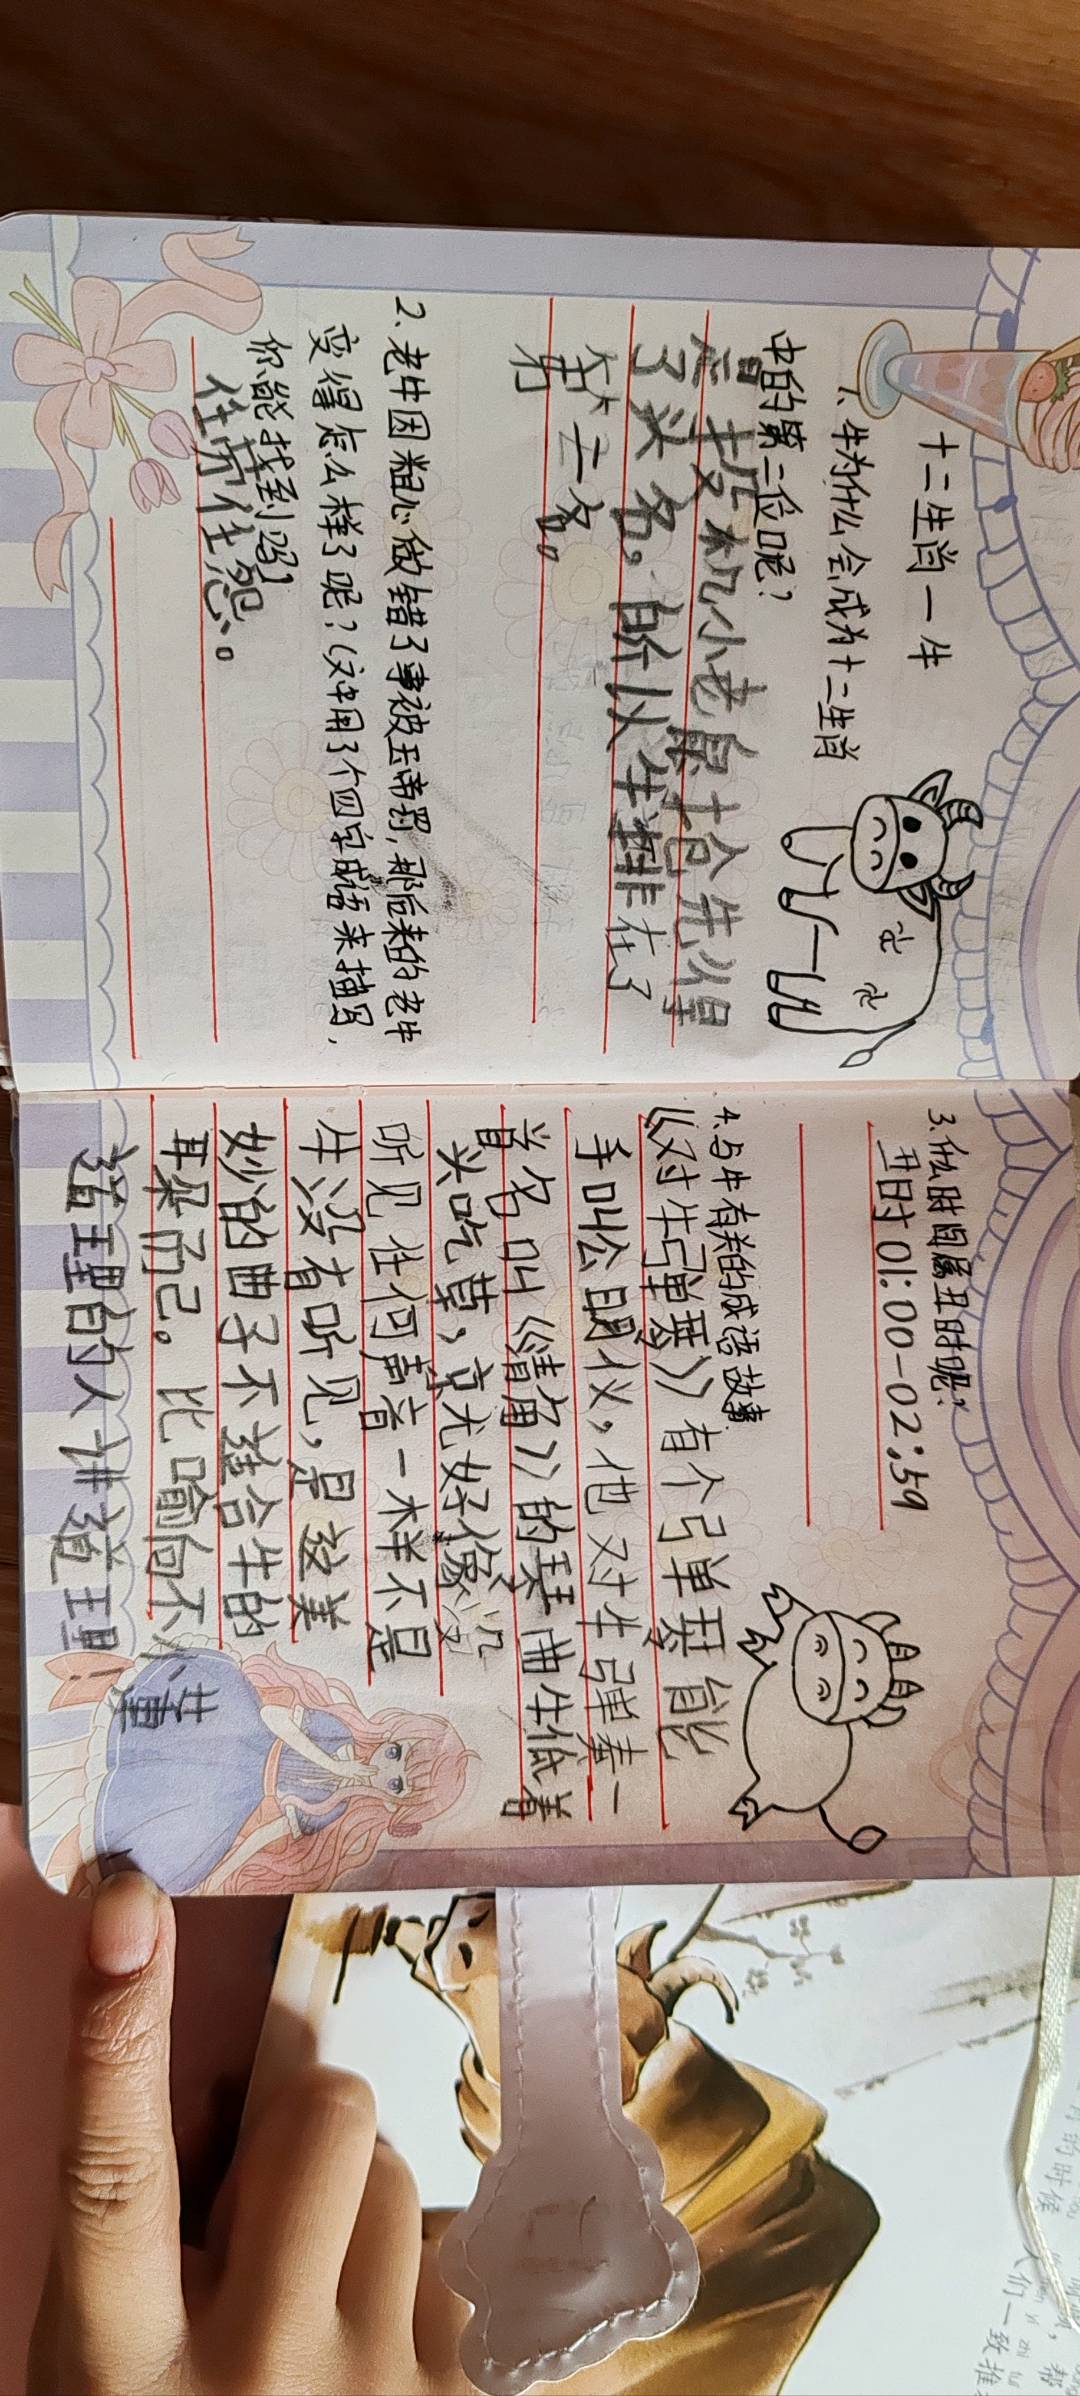 十二生肖一牛
1、牛为什么会成为十二生肖
中的第二位呢?
冒投机小老鼠抢先得
了头名。所以牛排在了
第二名。
2、老牛因粗心做错了事被玉帝罚,那后来的老牛
变得怎么样了呢?(文中用了个四字成语来描写,
你能找到吗)
任劳任怨。
3.什么时间属丑时呢?
丑时01:00-02:59
4.与牛有关的成语故事
《对牛弹琴》有个弓单琴能
手叫公明仪,他对牛弓单奏一
首名叫《清角》的琴曲牛低着
头吃草,京尤好像没
听见任何声音一样不是
牛没有听见,是这美
妙的曲子不适合牛的
耳朵而已。比喻向不懂
道理的人讲道理
的时候
人们一致推